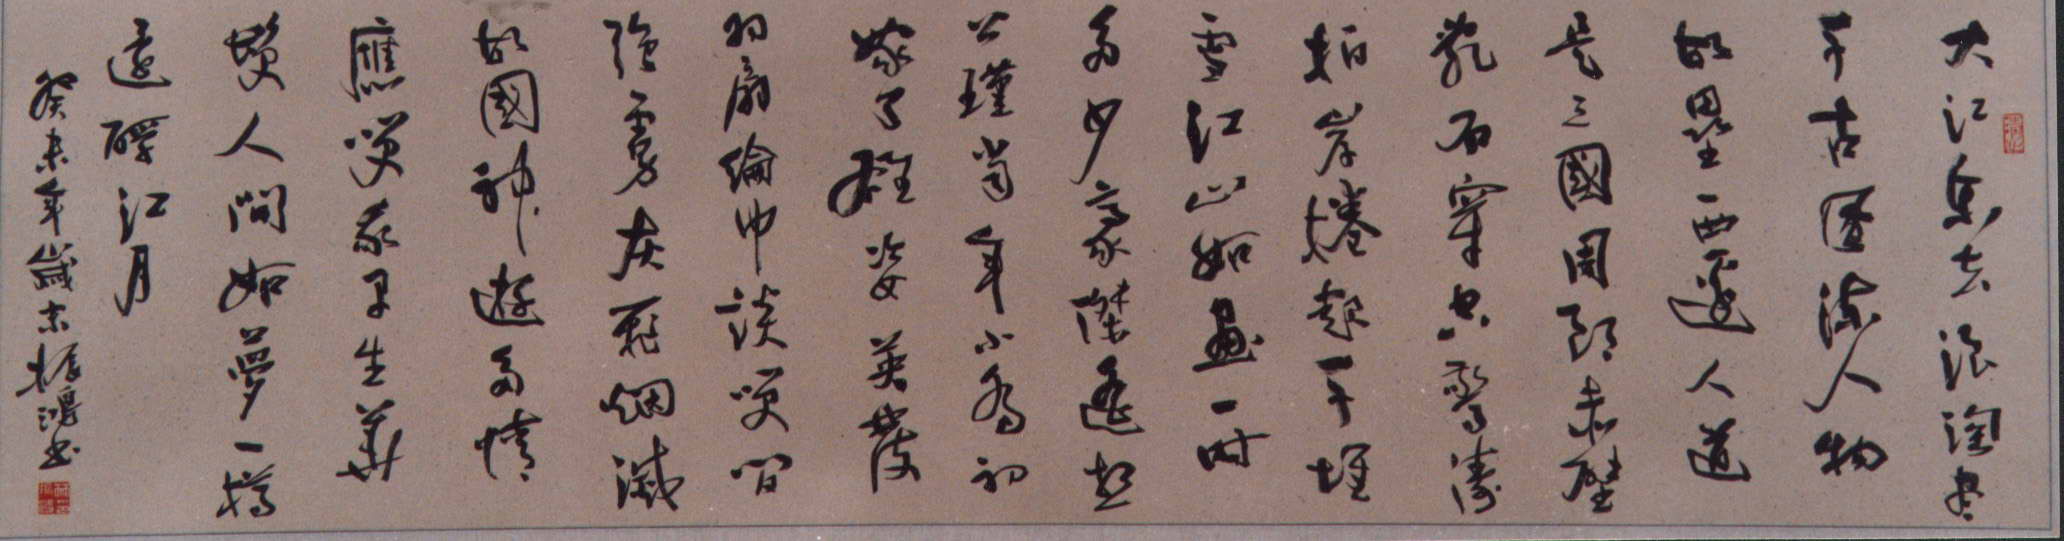 大江東去浪淘盡
千古風流人物
故壘西邊人道
是三國周郎赤壁
亂石穿空驚濤
拍岸捲起千堆
雪江山如畫一時
多少豪傑遙想
公瑾當年小喬初
嫁了雄姿英發
羽扇綸巾談笑間
強虜灰飛烟滅
故國神遊多情
應笑我早生華
髮人間如夢一樽
還酹江月
癸未年歲末振鴻書